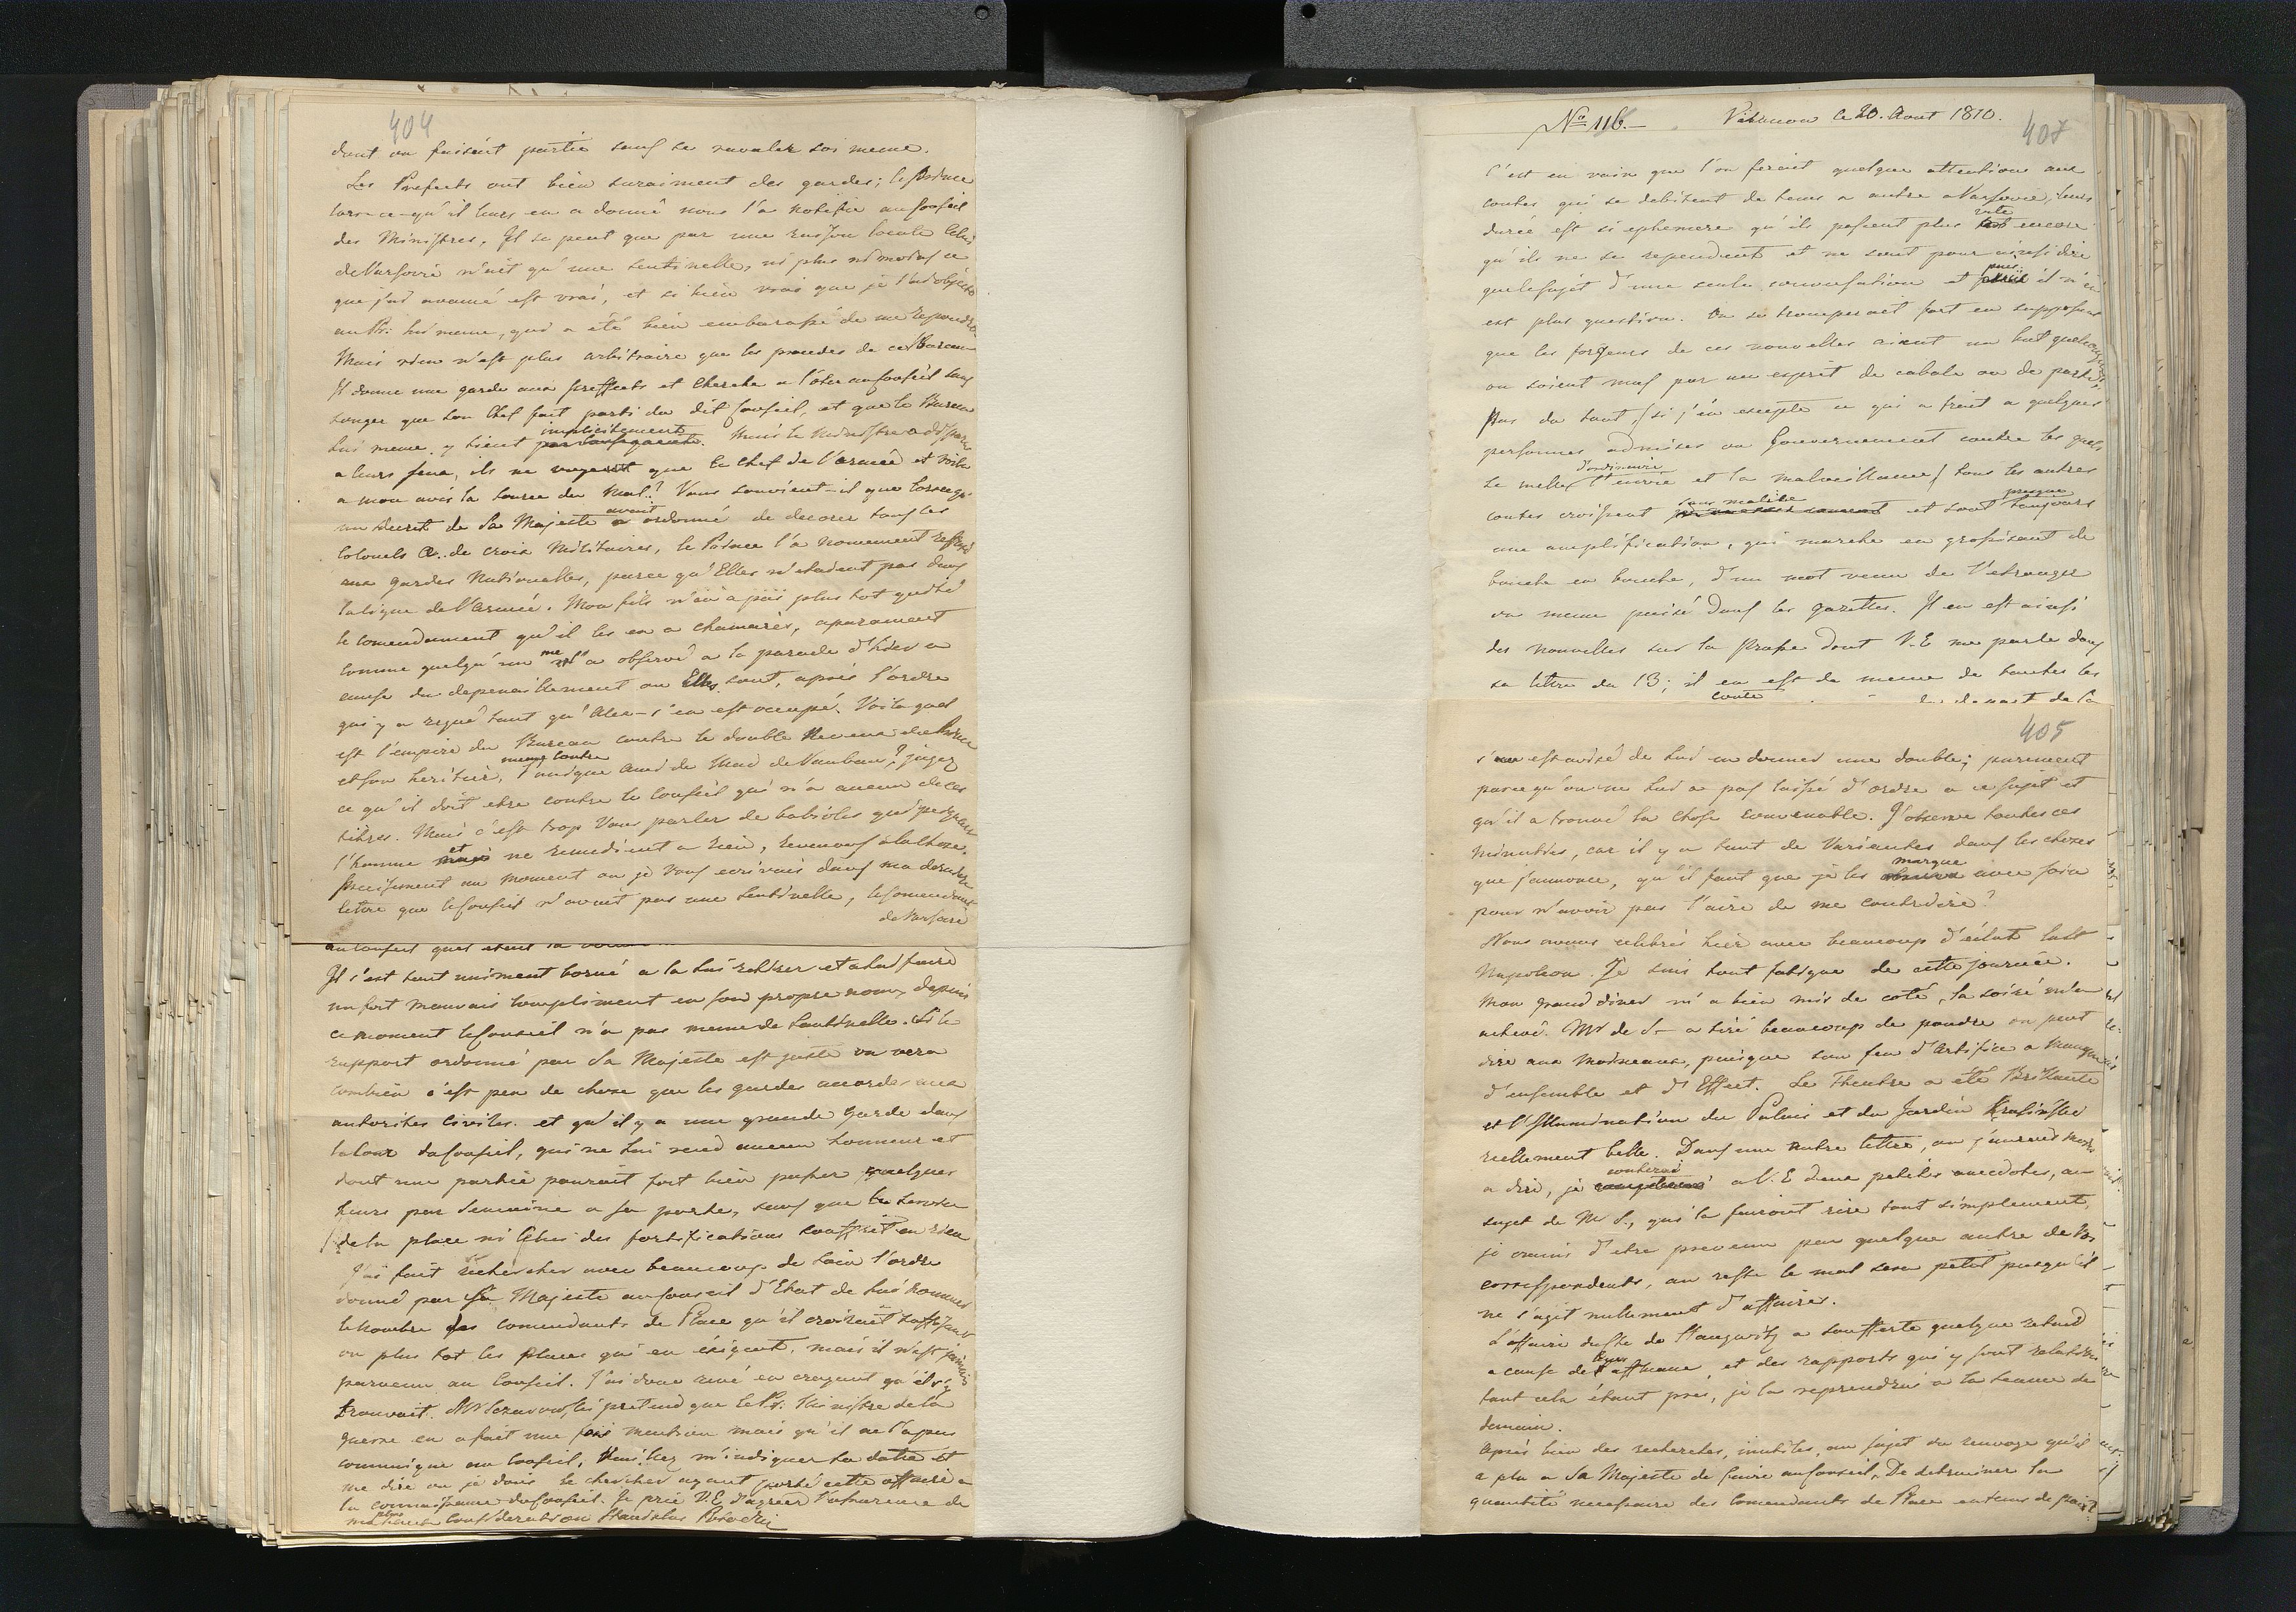 404
dont on faisait partie sans se ravaler soi meme.
Les Prefects ont bien surement des gardes; le Prince
lors-ce-qu'il leurs en a donné nous l'a notifié au Conseil
des Ministres. Il se peut que par une raison locale celui
de Varsovie n'ait qu'une sentinelle, ni plus ni moins ce
que j'ai avancé est vrai, et si bien vrai que je l'ai objecté
au Pr: lui meme, qui a été bien embarassé de me repondre
Mais rien n'est plus arbitraire que les procedes de ce Bureau
Il donne une garde aux prefects et cherche a l'oter au Conseil sans
songer que son Chef fait parti du dit Conseil, et que le Bureau
lui meme y tient implicitement. Mais le Ministre a disparu
a leurs yeux, ils ne voyent que le Chef de l'armée et voila
a mon avis la source du mal. Vous souvient-il que lorsequ'
un decret de Sa Majesté avait ordonné de decorer tous les
Colonels de croix Militaires, le Prince l'a nommement refusé
aux gardes Nationales, parce qu'Elles n'etaient pas dans
la ligne de l'armée. Mon fils n'en a pas plus tot quitté
le comendement qu'il les en a chamarés, aparament
comme quelqu'un me l'a observé a la parade d'hier a
cause du depenaillement ou Elles sont, après l'ordre
qui y a regné tant qu'Alex- s'en est occupé. Voila quel
est l'empire du Bureau contre le double Neveu du Prince
et son heritier, meme contre l'unique ami de Mad de Vauban, jugez
ce qu'il doit etre contre le Conseil qui n'a aucun de ces
titres. Mais c'est trop Vous parler de babioles qui
l'homme et ne remedient a rien, revenons a la chose.
Precisement au moment ou je Vous ecrivais dans ma derniere
lettre que le Conseil n'avait pas une sentinelle, le Comendant
de Varsovie
au Conseil quel etait la
Il s'est tout uniment borné a la lui retirer et a lui faire
un fort mauvais compliment en son propre nom, depuis
ce moment le Conseil n'a pas meme de Sentinelle. Si le
rapport ordonné par Sa Majesté est juste on vera
combien c'est peu de chose que les gardes accordes aux
autorites Civiles. et qu'il y a une grande garde dans
la cour du Conseil, qui ne lui rend aucun honneur et
dont une partie pourait fort bien passer quelques
heures par Semaine a sa porte, sans que le Service
de la place ni Celui des fortifications souffrit en rien
J'ai fait rechercher avec beaucoup de soin l'ordre
donné par Sa Majesté au Conseil d'Etat de lui nommer
le nombre des comendants de Place qu'il croirait suffisant
ou plus tot les places qui en éxigent, mais il n'est jamais
parvenu au Conseil. J'ai donc revé en croyant qu'il s'y
trouvait. Mr Szczurowski pretend que le Pr: Ministre de la
guerre en a fait une fois mention mais qu'il ne l'a pas
communiqué au Conseil. Veuillez m'indiquer sa datte et
me dire ou je dois le chercher ayant porté cette affaire a
la connaissance du Conseil. Je prie V.E. d'agréer l'assurance de
ma plus haute consideration Stanislas Potocki
No 116.— Vilanow le 20. Aout 1810. 407
C'est en vain que l'on ferait quelque attention aux
contes qui se debitent de tems a autre a Varsovie, leurs
durée est si ephemere qu'ils passent plus vite encore
qu'ils ne se rependent et ne sont pour ainsi dire
que le sujet d'une seule conversation et puis il n'en
est plus question. On se tromperait fort en supposant
que les forgeurs de ces nouvelles aient un but quelconque
ou soient mus par un esprit de cabale ou de parti.
Pas du tout, (si j'en excepte ce qui a trait a quelques
personnes admises au Gouvernement contre les quels
se melle d'ordinaire l'envie et la malveillance) tous les autres
contes croissent sans malice et sont presque toujours
une amplification, qui marche en grossissant de
bouche en bouche, d'un mot venu de l'etranger
ou meme puisé dans les gazettes. Il en est ainsi
des nouvelles sur la Prusse dont V.E. me parle dans
sa lettre du 13; il en est de meme de toutes les
conte depart de la
405
s'est avisé de lui en donner une double; purement
parce qu'on ne lui a pas laissé d'ordre a ce sujet et
qu'il a trouvé la chose convenable. J'observe toutes ces
minuties, car il y a tant de Variantes dans les choses
que j'annonce, qu'il faut que je les marque avec soin
pour n'avoir pas l'aire de me contredire?
Nous avons celebrés hier avec beaucoup d'éclat la St
Napoleon. Je suis tout fatigué de cette journée.
Mon grand diner m'a bien mis de coté, la soiré m'a
achevé. Mr de S— a tiré beaucoup de poudre on peut
dire aux Moineaux, puisque son feu d'artifice a manqué
d'ensemble et d'Effect. Le Theatre a été Brillante
et l'Illumination du Palais et du Jardin Krasinski
reellement belle. Dans une autre lettre, ou j'aurai moins
a dire, je conterai a V.E deux petites anecdotes, au
sujet de Mr S., qui la fairont rire tout simplement,
je crains d'etre prevenu par quelque autre de Vos
correspondents, au reste le mal sera petit puisqu'il
ne s'agit nullement d'affaires.
L'affaire du Cte de Haugwitz a soufferte quelque retard
a cause de l'absence, et des rapports qui y sont relatives
tout cela étant pres, je la reprendrai a la seance de
demain.
Après bien des recherches, inutiles, au sujet du renvoye qu'il
a plu a Sa Majesté de faire au Conseil, De determiner la
quantité necessaire des Comendants de Place en tems de paix